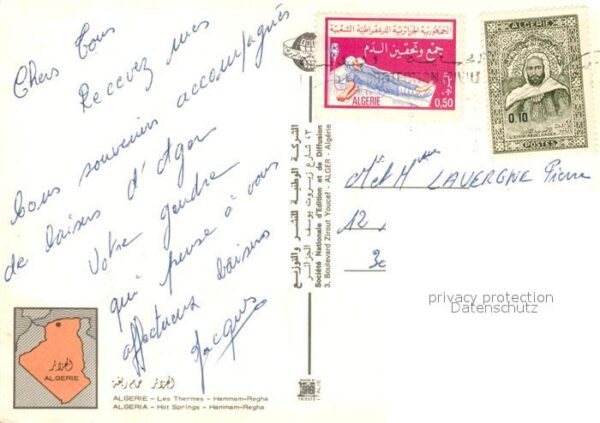 Chers Tous
Recevez mes
bons souvenirs accompagnés
de baisers d'Alger
Votre gendre
qui pense à vous
affectueux baisers
Jacques
الجزائر
ALGERIE
الجزائر حمام ريغة
ALGERIE - Les Thermes - Hammam-Regha
ALGERIA - Hot Springs - Hammam-Regha
الشركة الوطنية للنشر والتوزيع
٣، شارع زيروت يوسف الجزائر
Société Nationale d'Edition et de Diffusion
3, Boulevard Zirout Youcef - ALGER - Algérie
الجمهورية الجزائرية الديمقراطية الشعبية
جمع وتحقين الدم
ALGERIE
0,50
ALGERIE
0,10
POSTES
LAVERGNE Pierre
12
privacy protection
Datenschutz